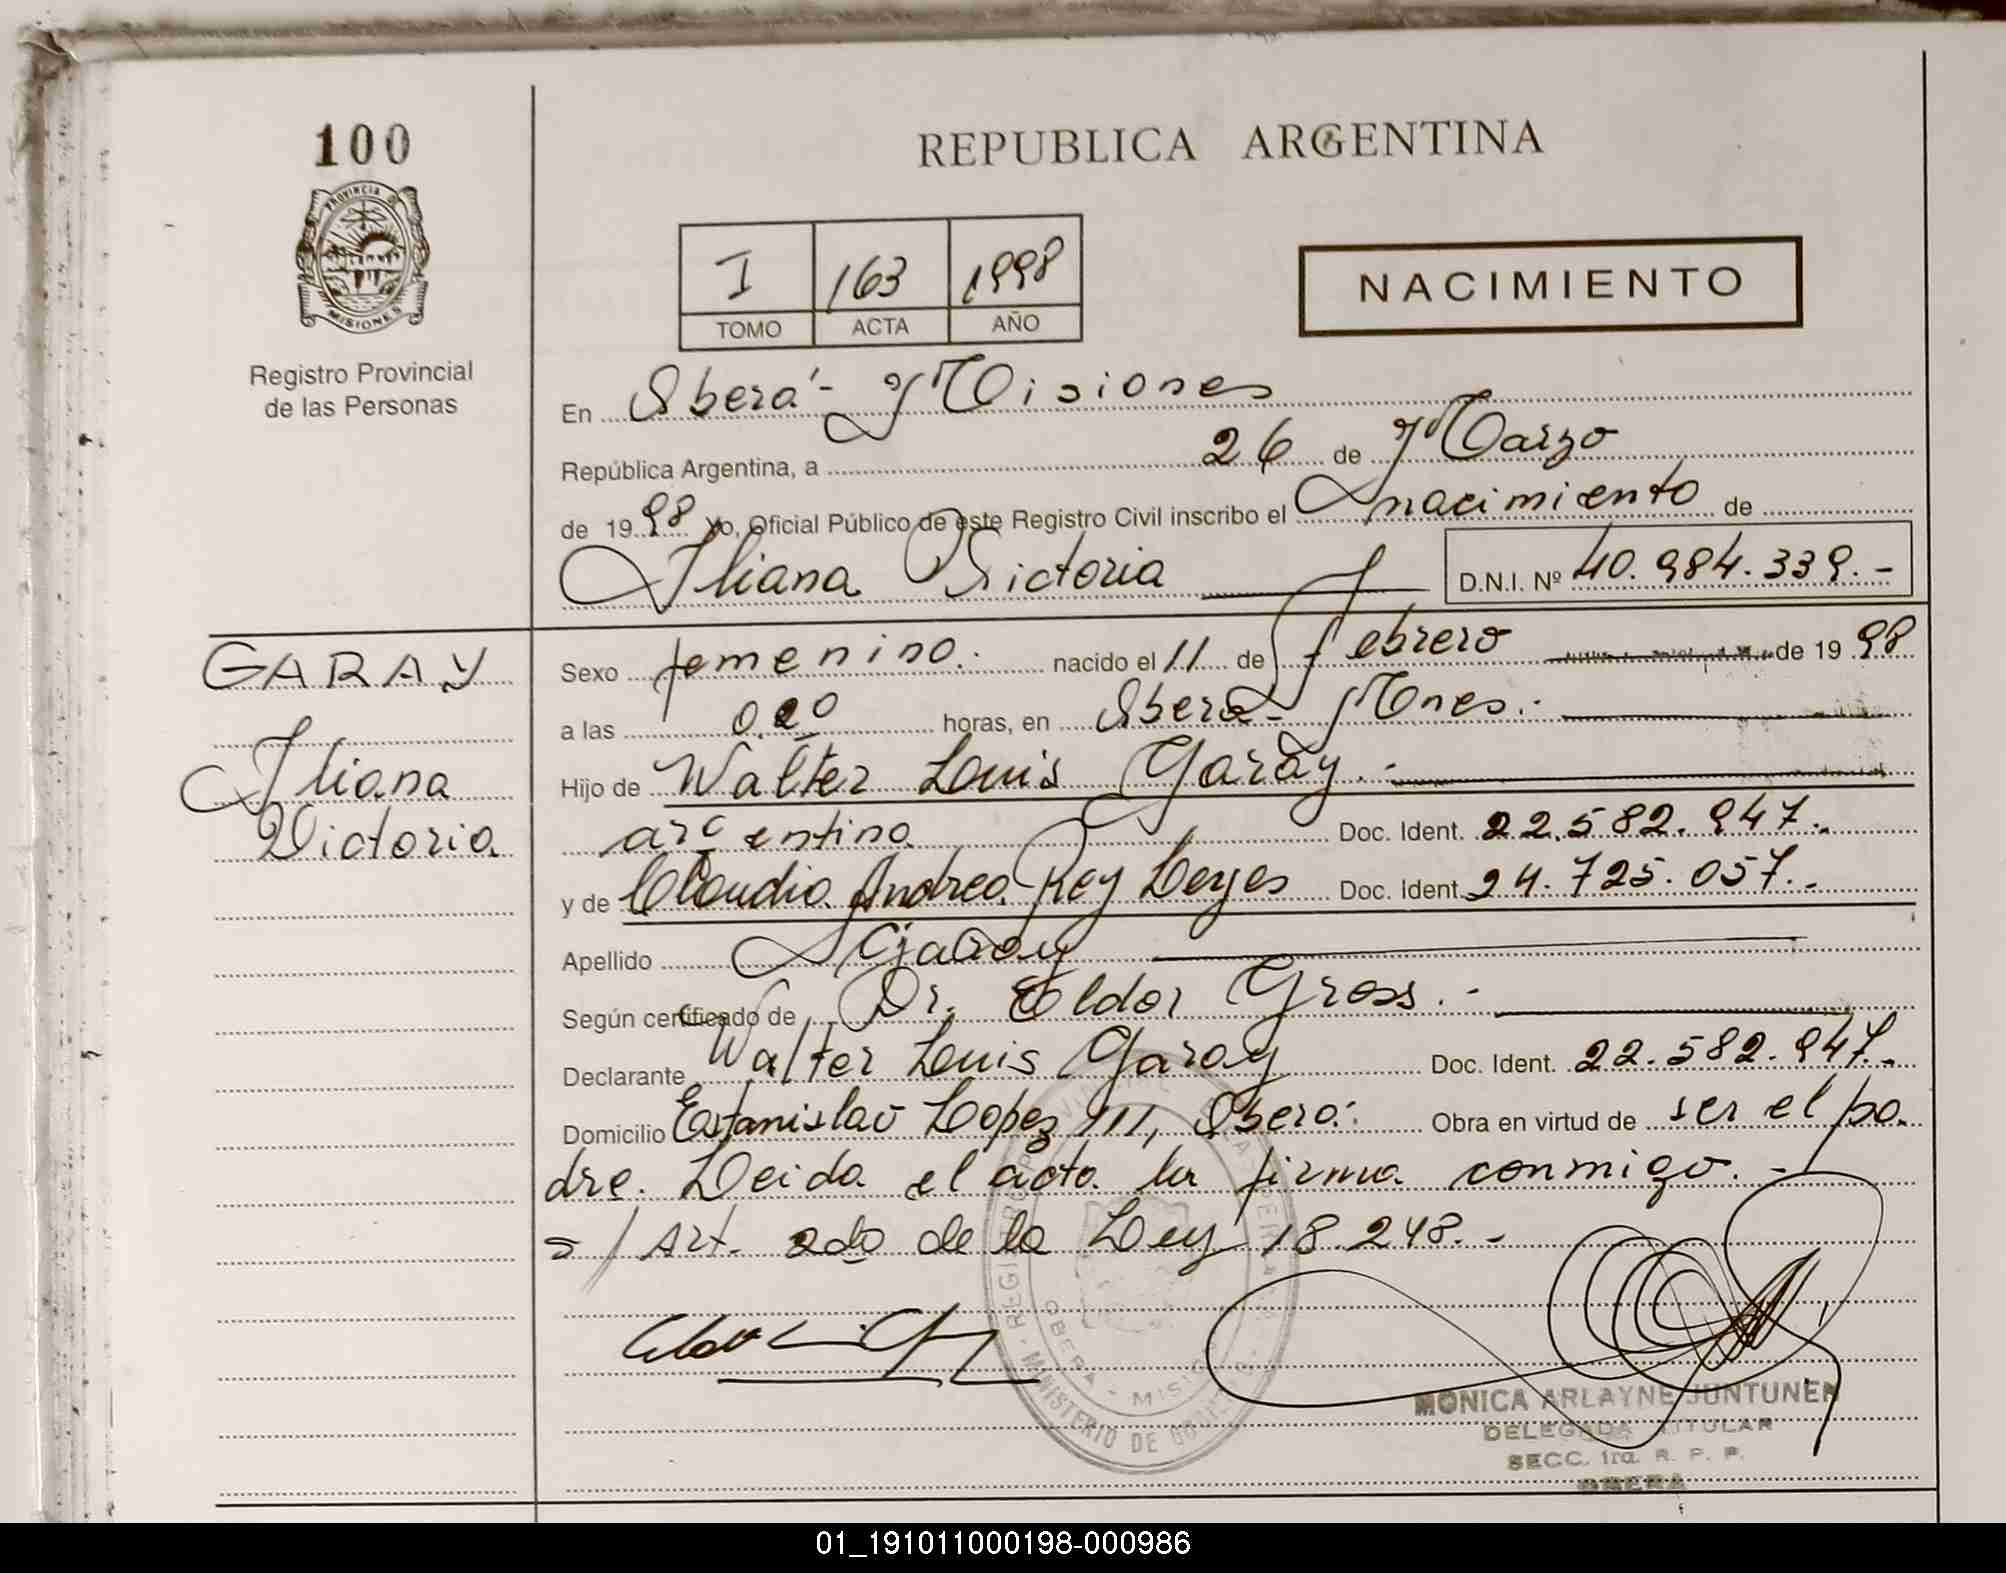 100
REPUBLICA ARGENTINA
PROVINCIA
MISIONES
Registro Provincial
de las Personas
I 163 1998
TOMO ACTA AÑO
NACIMIENTO
En Oberá - Misiones
República Argentina, a 26 de Marzo
de 1998 Yo, Oficial Público de este Registro Civil inscribo el nacimiento de
Iliana Victoria D.N.I. Nº 40.984.339.-
GARAY
Iliana
Victoria
Sexo femenino. nacido el 11 de febrero de 1998
a las horas, en Oberá - Mnes.-
Hijo de Walter Luis Garay.-
argentino Doc. Ident. 22.582.947.-
y de Claudia Andrea Rey Leyes Doc. Ident. 24.725.057.-
Apellido Garay
Según certificado de Dr. Eldor Gross.-
Declarante Walter Luis Garay Doc. Ident. 22.582.947.-
Domicilio Estanislao Lopez 111, Oberá. Obra en virtud de ser el pa
dre. Leida el acta la firma conmigo.-
s/Art. 2do de la Ley 18.248.-
MONICA ARLAYNE JUNTUNEN
DELEGADA TITULAR
SECC. 1ra. R. P. P.
OBERA
MINISTERIO DE GOBIERNO
OBERA - MISIONES
01_191011000198-000986